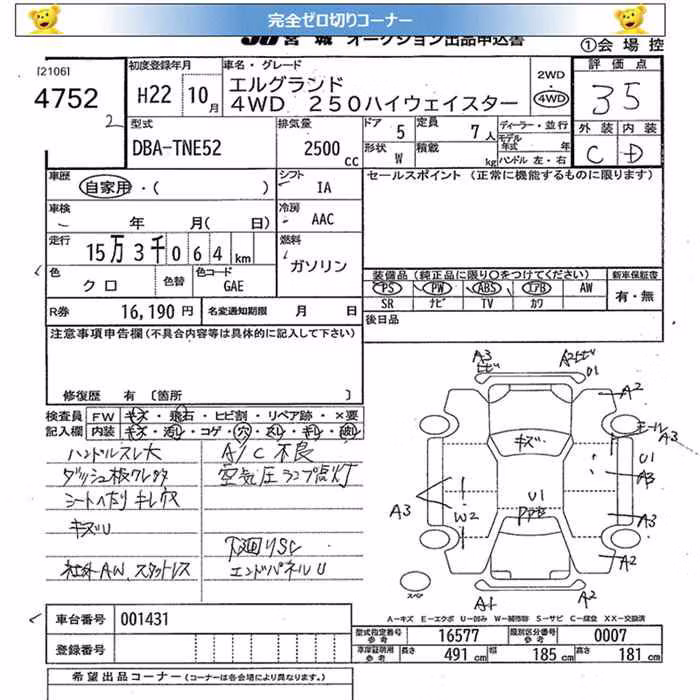 完全ゼロ切りコーナー
JU 宮城 オークション出品申込書
①会場控
[2106]
4752
2
初度登録年月
H22 10月
車名・グレード
エルグランド
4WD 250ハイウェイスター
2WD
・
4WD
評価点
35
外装 内装
C D
型式
DBA-TNE52
排気量
2500 cc
ドア 5
形状 W
定員 7人
積載 kg
ディーラー・並行
モデル年式 年
ハンドル 左・右
車歴
自家用・( )
シフト
IA
車検
年 月(日)
冷房
AAC
走行
15万3千064km
燃料
ガソリン
色
クロ
色替
色コード
GAE
R券
16,190円
名変通知期限 月 日
セールスポイント(正常に機能するものに限ります)
装備品(純正品に限り○をつけてください)
新車保証書
PS PW ABS エアB AW
SR ナビ TV カワ
有・無
後日品
注意事項申告欄(不具合内容等は具体的に記入して下さい)
修復歴 有〔箇所 〕
検査員
記入欄
FW キズ・飛石・ヒビ割・リペア跡・×要
内装 キズ・汚レ・コゲ・穴・スレ・キレ・破レ
ハンドルスレ大
A/C 不良
空気圧ランプ点灯
キズU
下回りSC
社外AW、スタッドレス
エンドパネルU
A3
ヒビ
A2ヒビ
U1
A2
キズ
モールA3
U1
A3
A3
W2
U1
A3
A2
A1
A2
スペア
A-キズ E-エクボ U-凹み W-補修跡 S-サビ C-腐食 XX-交換済
車台番号
001431
登録番号
型式指定番号
参考
16577
類別区分番号
参考
0007
車庫証明用
参考
長さ 491cm
幅 185cm
高さ 181cm
希望出品コーナー(コーナーは各会場により異なります。)